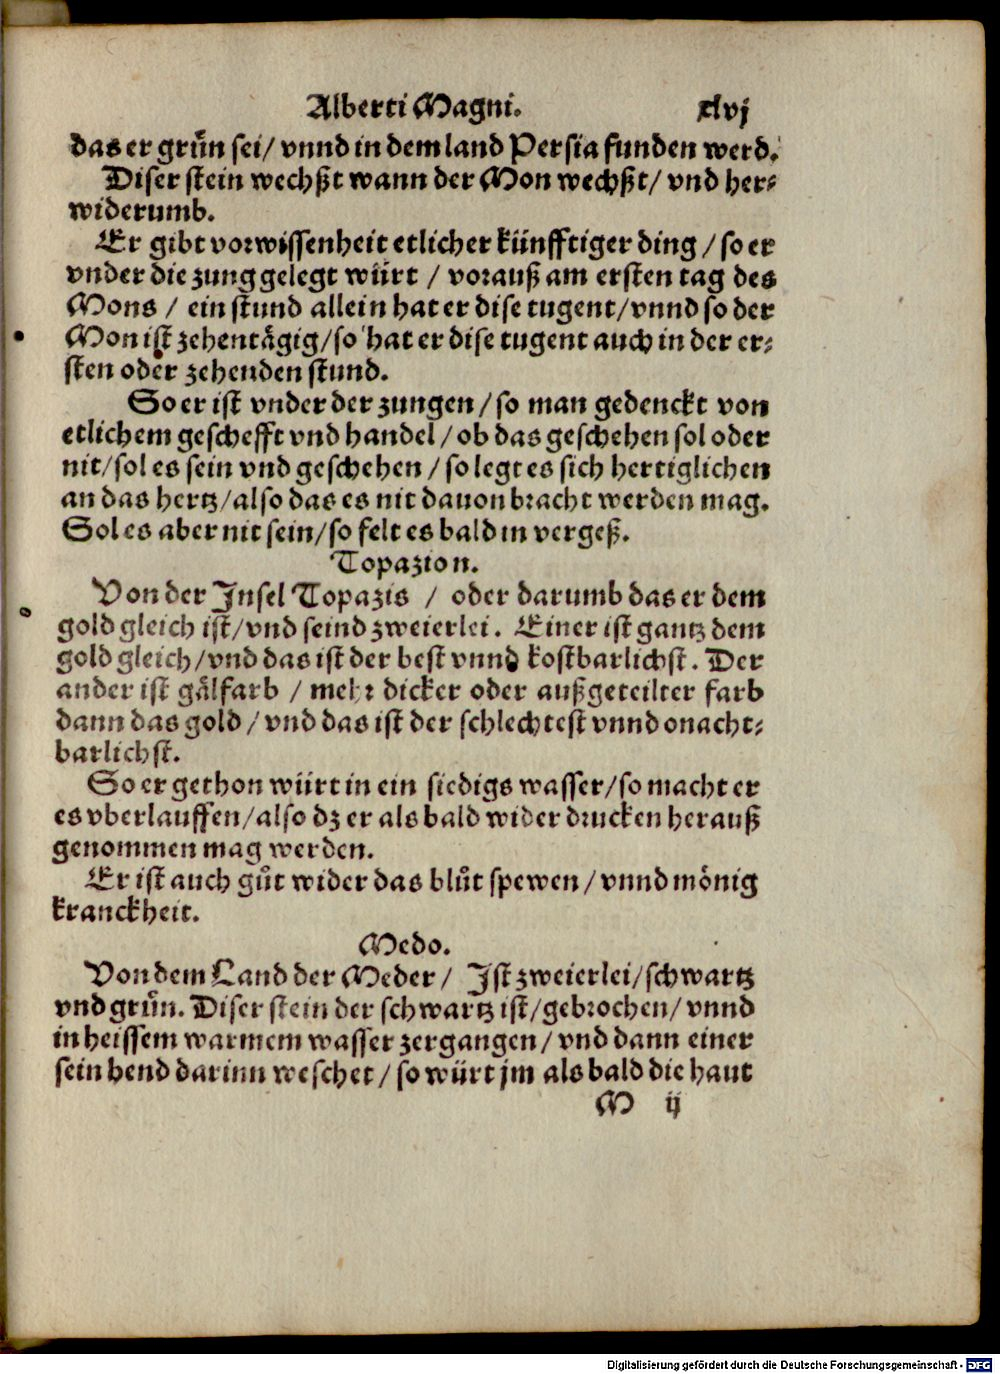 Alberti Magni. xlvj
das er grůn sei/ vnnd in dem land Persia funden werd.
Diser stein wechßt wann der Mon wechßt/ vnd her⸗
widerumb.
Er gibt vorwissenheit etlicher künfftiger ding / so er
vnder die zung gelegt würt / vorauß am ersten tag des
Mons / ein stund allein hat er dise tugent/ vnnd so der
Mon ist zehentägig/ so hat er dise tugent auch in der er⸗
sten oder zehenden stund.
So er ist vnder der zungen / so man gedenckt von
etlichem geschefft vnd handel / ob das geschehen sol oder
nit/ sol es sein vnd geschehen / so legt es sich hertiglichen
an das hertz/ also das es nit dauon bracht werden mag.
Sol es aber nit sein/ so felt es bald in vergeß.
Topazion.
Von der Insel Topazis / oder darumb das er dem
gold gleich ist/ vnd seind zweierlei. Einer ist gantz dem
gold gleich/ vnd das ist der best vnnd kostbarlichst. Der
ander ist gälfarb / mehr dicker oder außgeteilter farb
dann das gold/ vnd das ist der schlechtest vnnd onacht⸗
barlichst.
So er gethon würt in ein siedigs wasser/ so macht er
es vberlauffen/ also dz er als bald wider drucken herauß
genommen mag werden.
Er ist auch gůt wider das blůt spewen/ vnnd mönig
kranckheit.
Medo.
Von dem Land der Meder/ Ist zweierlei/ schwartz
vnd grůn. Diser stein der schwartz ist/ gebrochen/ vnnd
in heissem warmem wasser zergangen/ vnd dann einer
sein hend darinn weschet/ so würt jm als bald die haut
M ij
Digitalisierung gefördert durch die Deutsche Forschungsgemeinschaft - DFG